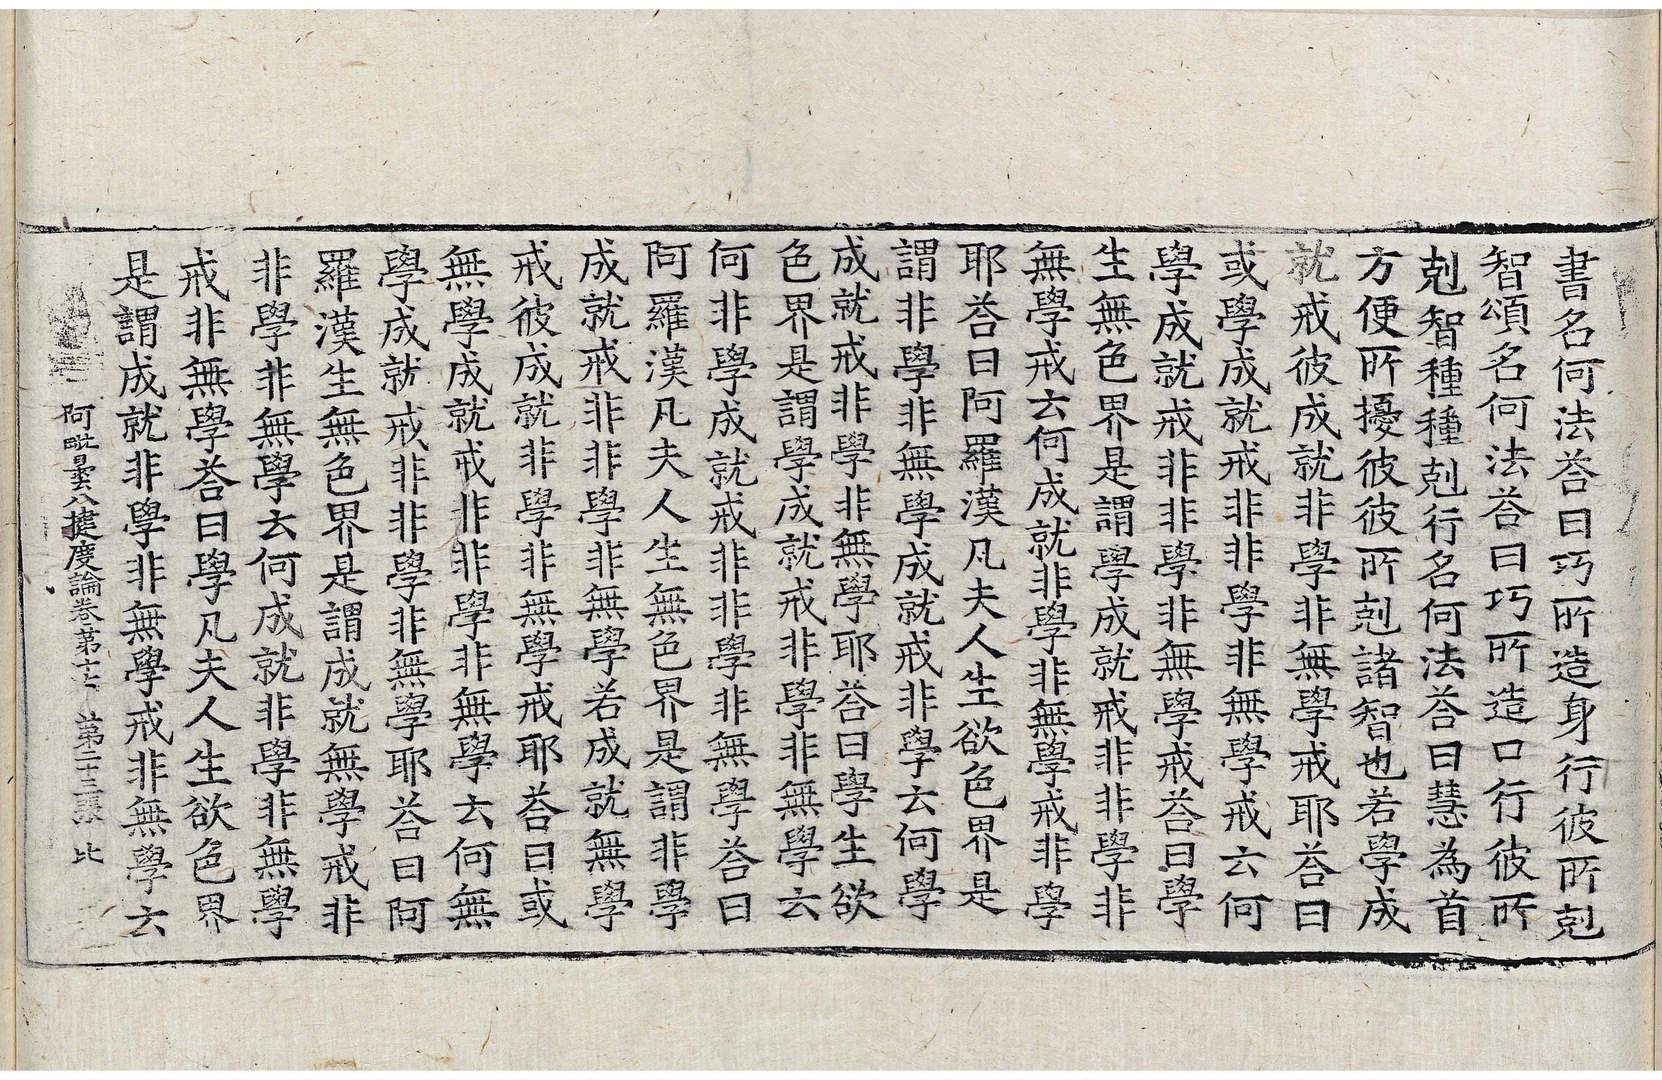 書名何法荅曰巧所造身行彼所剋
智頌名何法荅曰巧所造口行彼所
剋智種種剋行名何法荅曰慧為首
方便所擾彼彼所剋諸智也若學成
就戒彼成就非學非無學戒耶荅曰
或學成就戒非非學非無學戒云何
學成就戒非非學非無學戒荅曰學
生無色界是謂學成就戒非非學非
無學戒云何成就非學非無學戒非學
耶荅曰阿羅漢凡夫人生欲色界是
謂非學非無學成就戒非學云何學
成就戒非學非無學耶荅曰學生欲
色界是謂學成就戒非學非無學云
何非學成就戒非非學非無學荅曰
阿羅漢凡夫人生無色界是謂非學
成就戒非非學非無學若成就無學
戒彼成就非學非無學戒耶荅曰或
無學成就戒非非學非無學云何無
學成就戒非非學非無學耶荅曰阿
羅漢生無色界是謂成就無學戒非
非學非無學云何成就非學非無學
戒非無學荅曰學凡夫人生欲色界
是謂成就非學非無學戒非無學云
阿毗曇八揵度論卷第十六 第二十三張 比